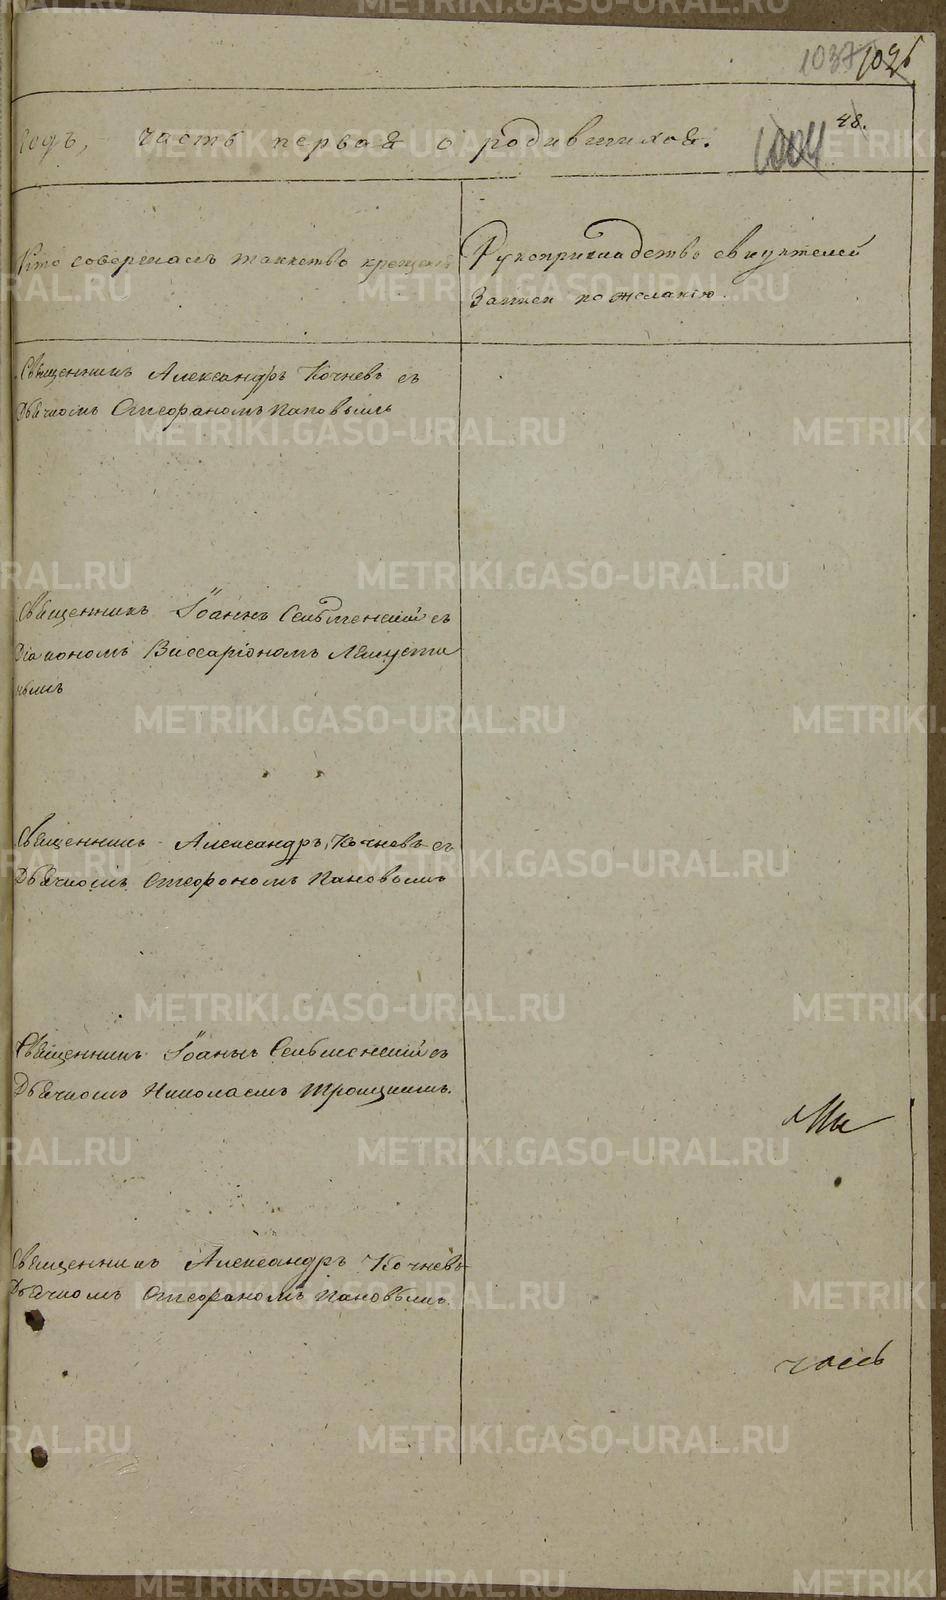 1037 1026
годъ, часть первая о родившихся.
48.
1004
Кто совершалъ таинство крещенія
Рукоприкладство свидѣтелей
Записи по желанію.
Священникъ Александръ Кочневъ съ
Дьячкомъ Стефаномъ Пановымъ
Священникъ Іоаннъ Сельменскій съ
Діакономъ Виссаріономъ
нымъ
Священникъ Александръ Кочневъ съ
Дьячкомъ Стефономъ Пановымъ
Священникъ Іоаннъ Сельменскій съ
Дьячкомъ Николаемъ Троицкимъ.
Священникъ Александръ Кочневъ
Дьячкомъ Стефаномъ Пановымъ.
METRIKI.GASO-URAL.RU